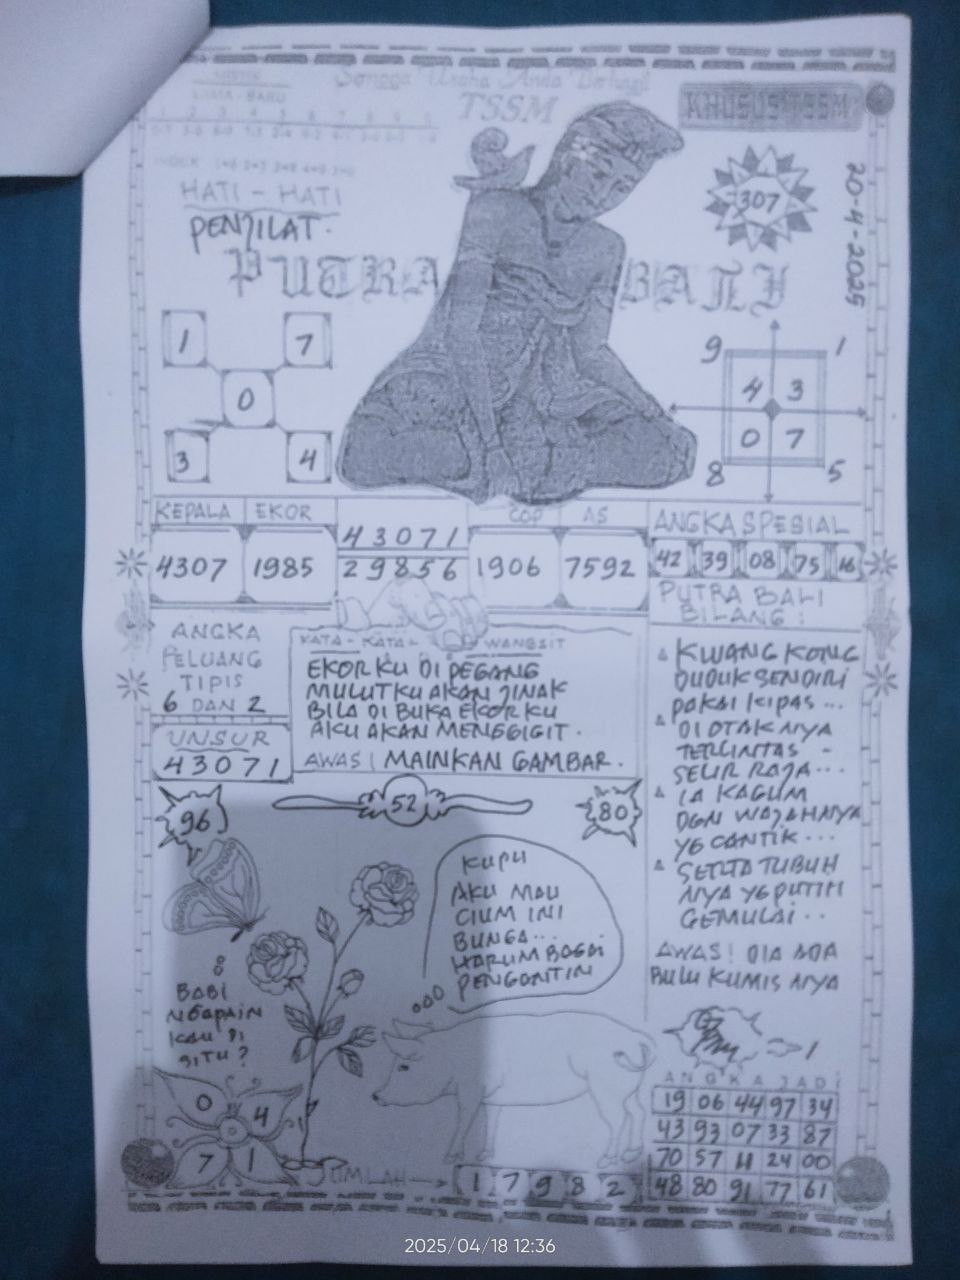 Semoga Usaha Anda Berhasil
TSSM
KHUSUS TSSM
LAMA - BARU
HATI - HATI
PENJILAT.
PUTRA BALI
307
20-4-2025
1 7
0
3 4
9 1
4 3
0 7
8 5
KEPALA EKOR
4307 1985
43071
29856
COP AS
1906 7592
ANGKA SPESIAL
42 39 08 75 16
ANGKA
PELUANG
TIPIS
6 DAN 2
UNSUR
43071
KATA - KATA WANGSIT
EKORKU DI PEGANG
MULUTKU AKAN JINAK
BILA DI BUKA EKORKU
AKU AKAN MENGGIGIT.
AWAS! MAINKAN GAMBAR.
PUTRA BALI
BILANG :
KWANG KONG
DUDUK SENDIRI
PAKAI KIPAS ...
DI OTAK NYA
TERLINTAS -
SELIR RAJA...
IA KAGUM
DGN WAJAHNYA
YG CANTIK ...
SERTA TUBUH
NYA YG PUTIH
GEMULAI ..
AWAS! DIA ADA
BULU KUMIS NYA
96
52
80
KUPU
AKU MAU
CIUM INI
BUNGA...
HARUM BAGAI
PENGANTIN
BABI
NGAPAIN
KAU DI
SITU ?
0 4
7 1
JUMLAH
1 7 9 8 2
ANGKA JADI
19 06 44 97 34
43 93 07 33 87
70 57 11 24 00
48 80 91 77 61
2025/04/18 12:36